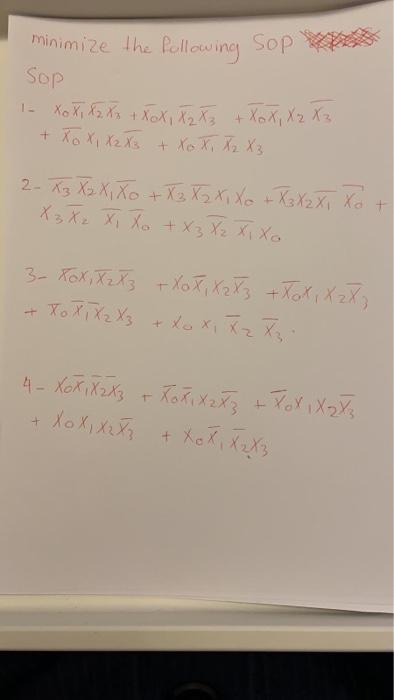 minimize the following Sop
Sop
1- X₀X̅₁X̅₂X̅₃ + X̅₀X₁X̅₂X̅₃ + X̅₀X̅₁X₂X̅₃
+ X̅₀X₁X₂X̅₃ + X₀X̅₁X̅₂X₃
2- X̅₃X̅₂X₁X̅₀ + X̅₃X̅₂X₁X₀ + X̅₃X₂X̅₁X̅₀ +
X₃X̅₂X̅₁X̅₀ + X₃X̅₂X̅₁X₀
3- X̅₀X₁X̅₂X̅₃ + X₀X̅₁X₂X̅₃ + X̅₀X₁X₂X̅₃
+ X̅₀X̅₁X₂X₃ + X₀X₁X̅₂X̅₃.
4- X₀X̅₁X̅₂X̅₃ + X̅₀X̅₁X₂X̅₃ + X̅₀X₁X₂X̅₃
+ X₀X₁X₂X̅₃ + X₀X̅₁X̅₂X₃